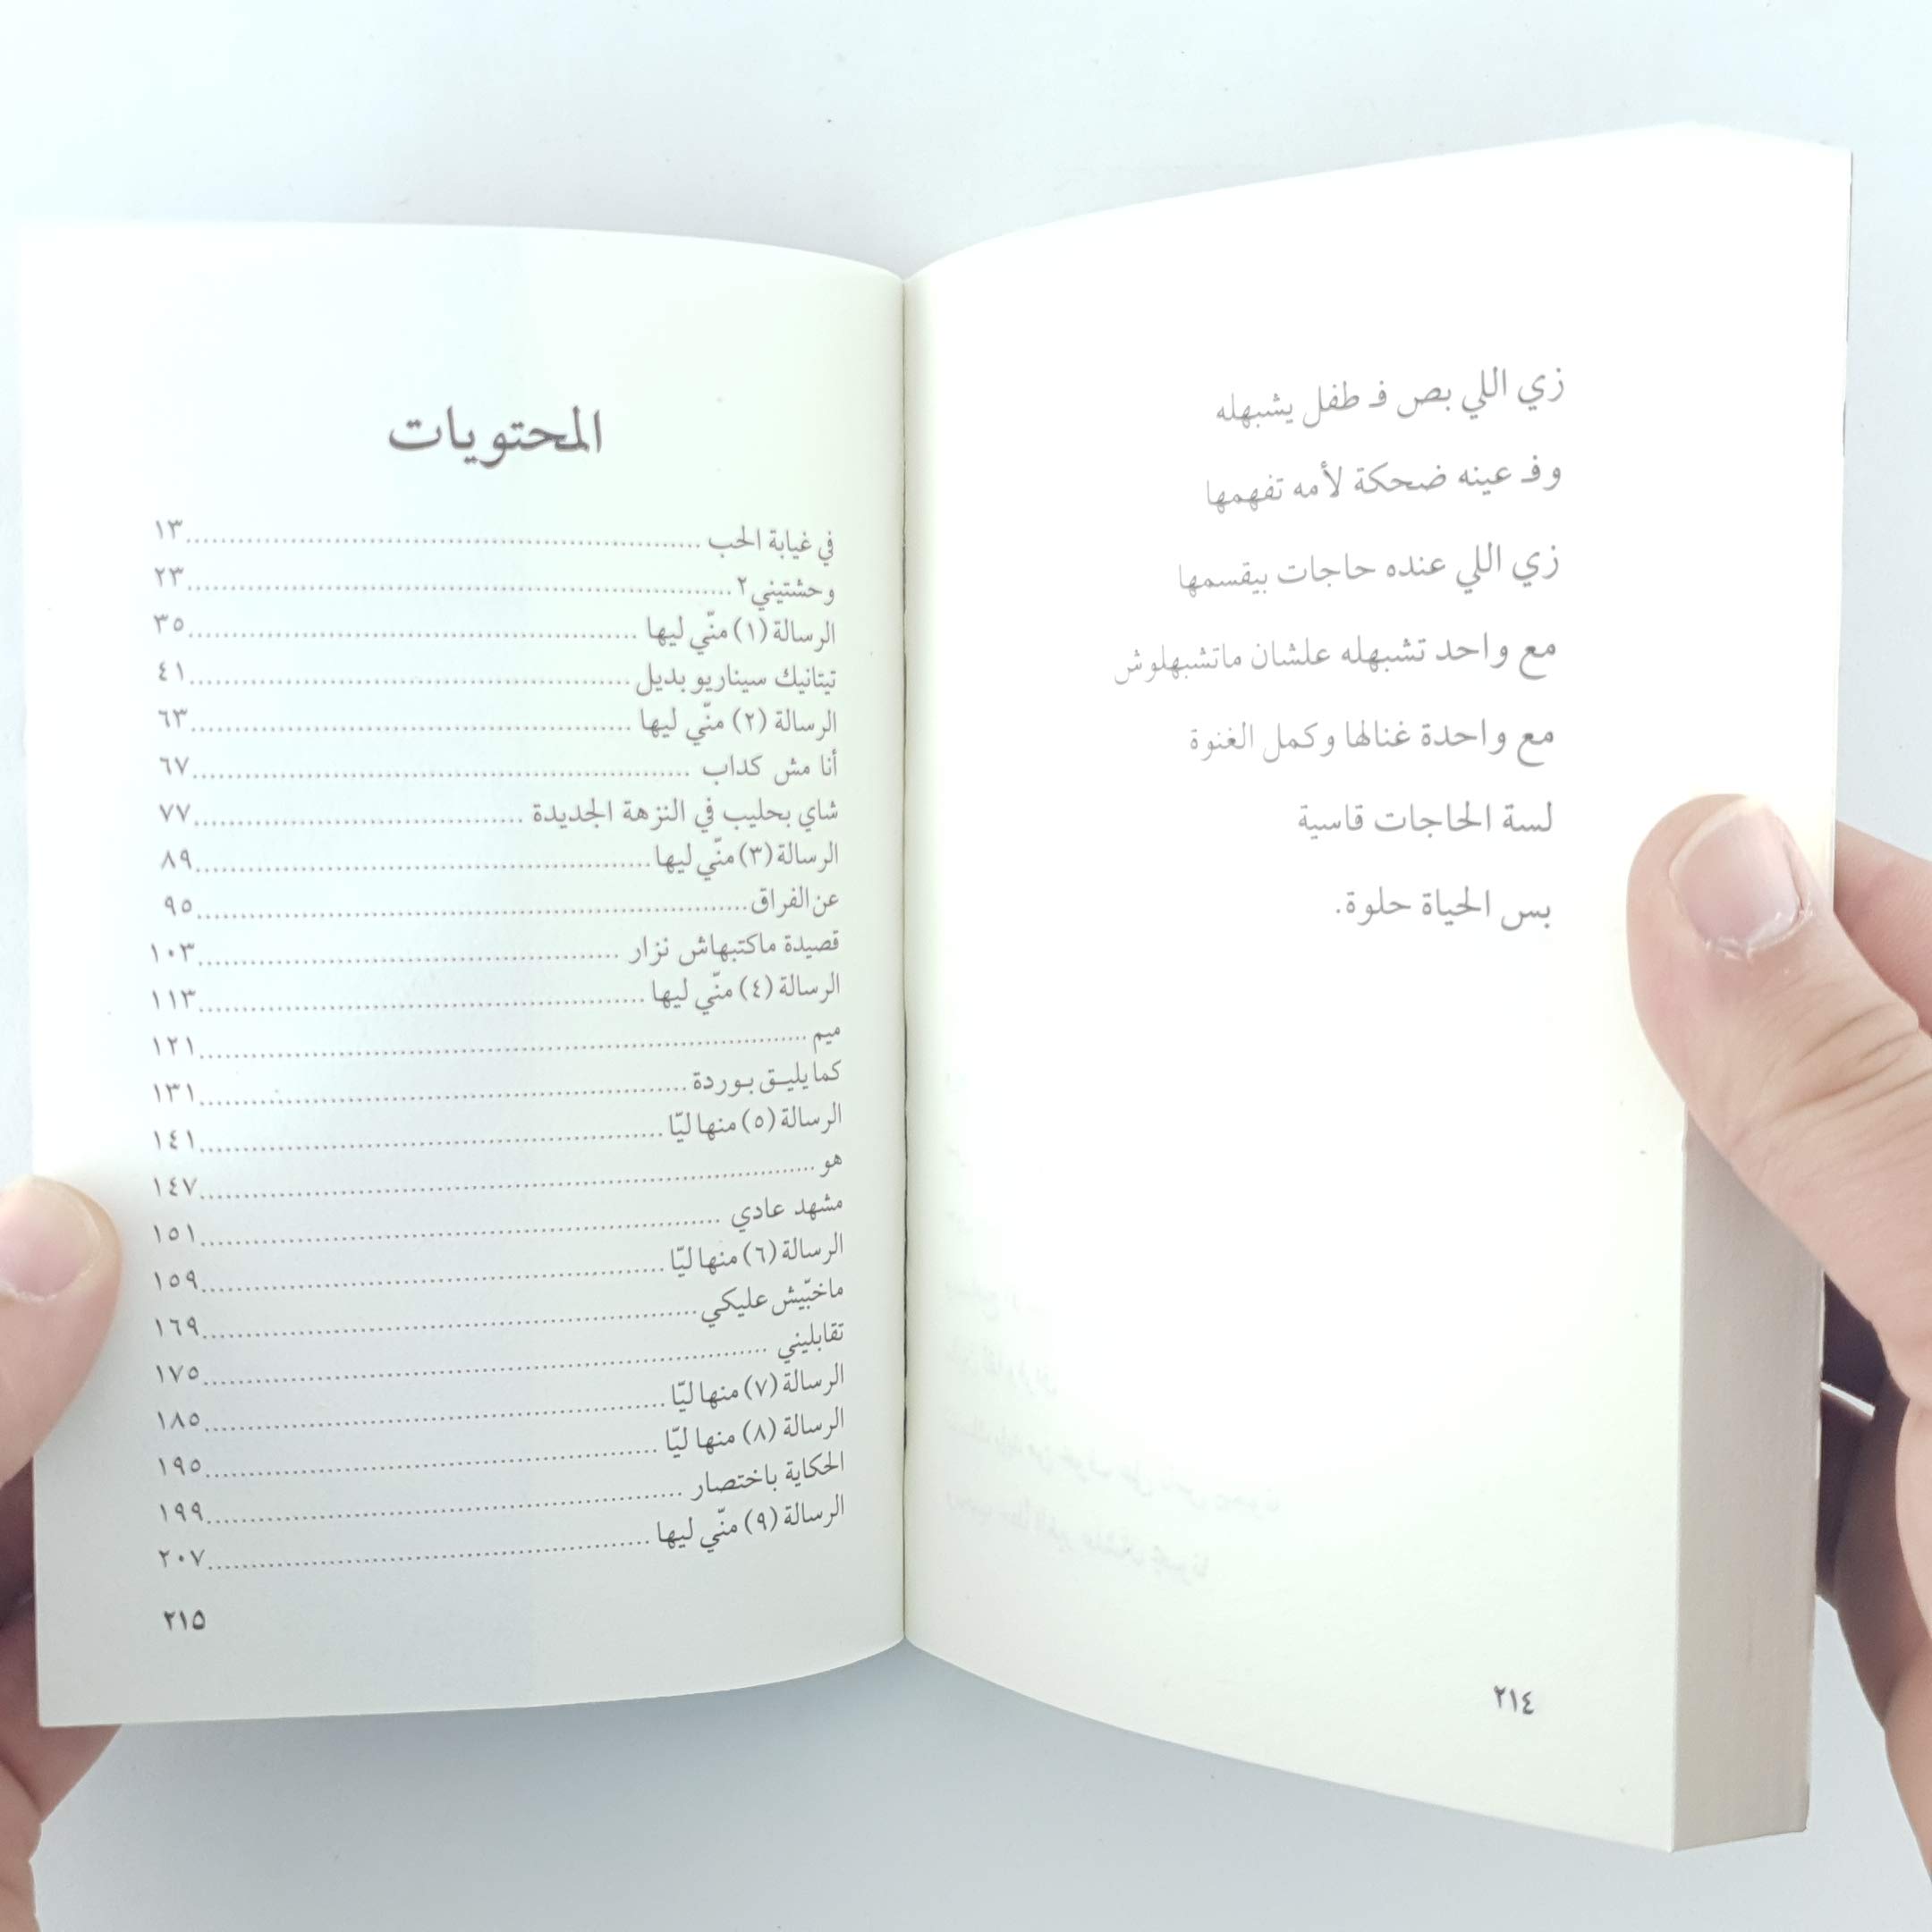 زي اللي بص فـ طفل يشبهله
وفـ عينه ضحكة لأمه تفهمها
زي اللي عنده حاجات بيقسمها
مع واحد تشبهله علشان ماتشبهلوش
مع واحدة غنالها وكمل الغنوة
لسة الحاجات قاسية
بس الحياة حلوة.
٢١٤
المحتويات
في غيابة الحب ........ ١٣
وحشتيني ٢ ........ ٢٣
الرسالة (١) منّي ليها ........ ٣٥
تيتانيك سيناريو بديل ........ ٤١
الرسالة (٢) منّي ليها ........ ٦٣
أنا مش كداب ........ ٦٧
شاي بحليب في النزهة الجديدة ........ ٧٧
الرسالة (٣) منّي ليها ........ ٨٩
عن الفراق ........ ٩٥
قصيدة ماكتبهاش نزار ........ ١٠٣
الرسالة (٤) منّي ليها ........ ١١٣
ميم ........ ١٢١
كما يليـق بـوردة ........ ١٣١
الرسالة (٥) منها ليّا ........ ١٤١
هو ........ ١٤٧
مشهد عادي ........ ١٥١
الرسالة (٦) منها ليّا ........ ١٥٩
ماخبّيش عليكي ........ ١٦٩
تقابليني ........ ١٧٥
الرسالة (٧) منها ليّا ........ ١٨٥
الرسالة (٨) منها ليّا ........ ١٩٥
الحكاية باختصار ........ ١٩٩
الرسالة (٩) منّي ليها ........ ٢٠٧
٢١٥